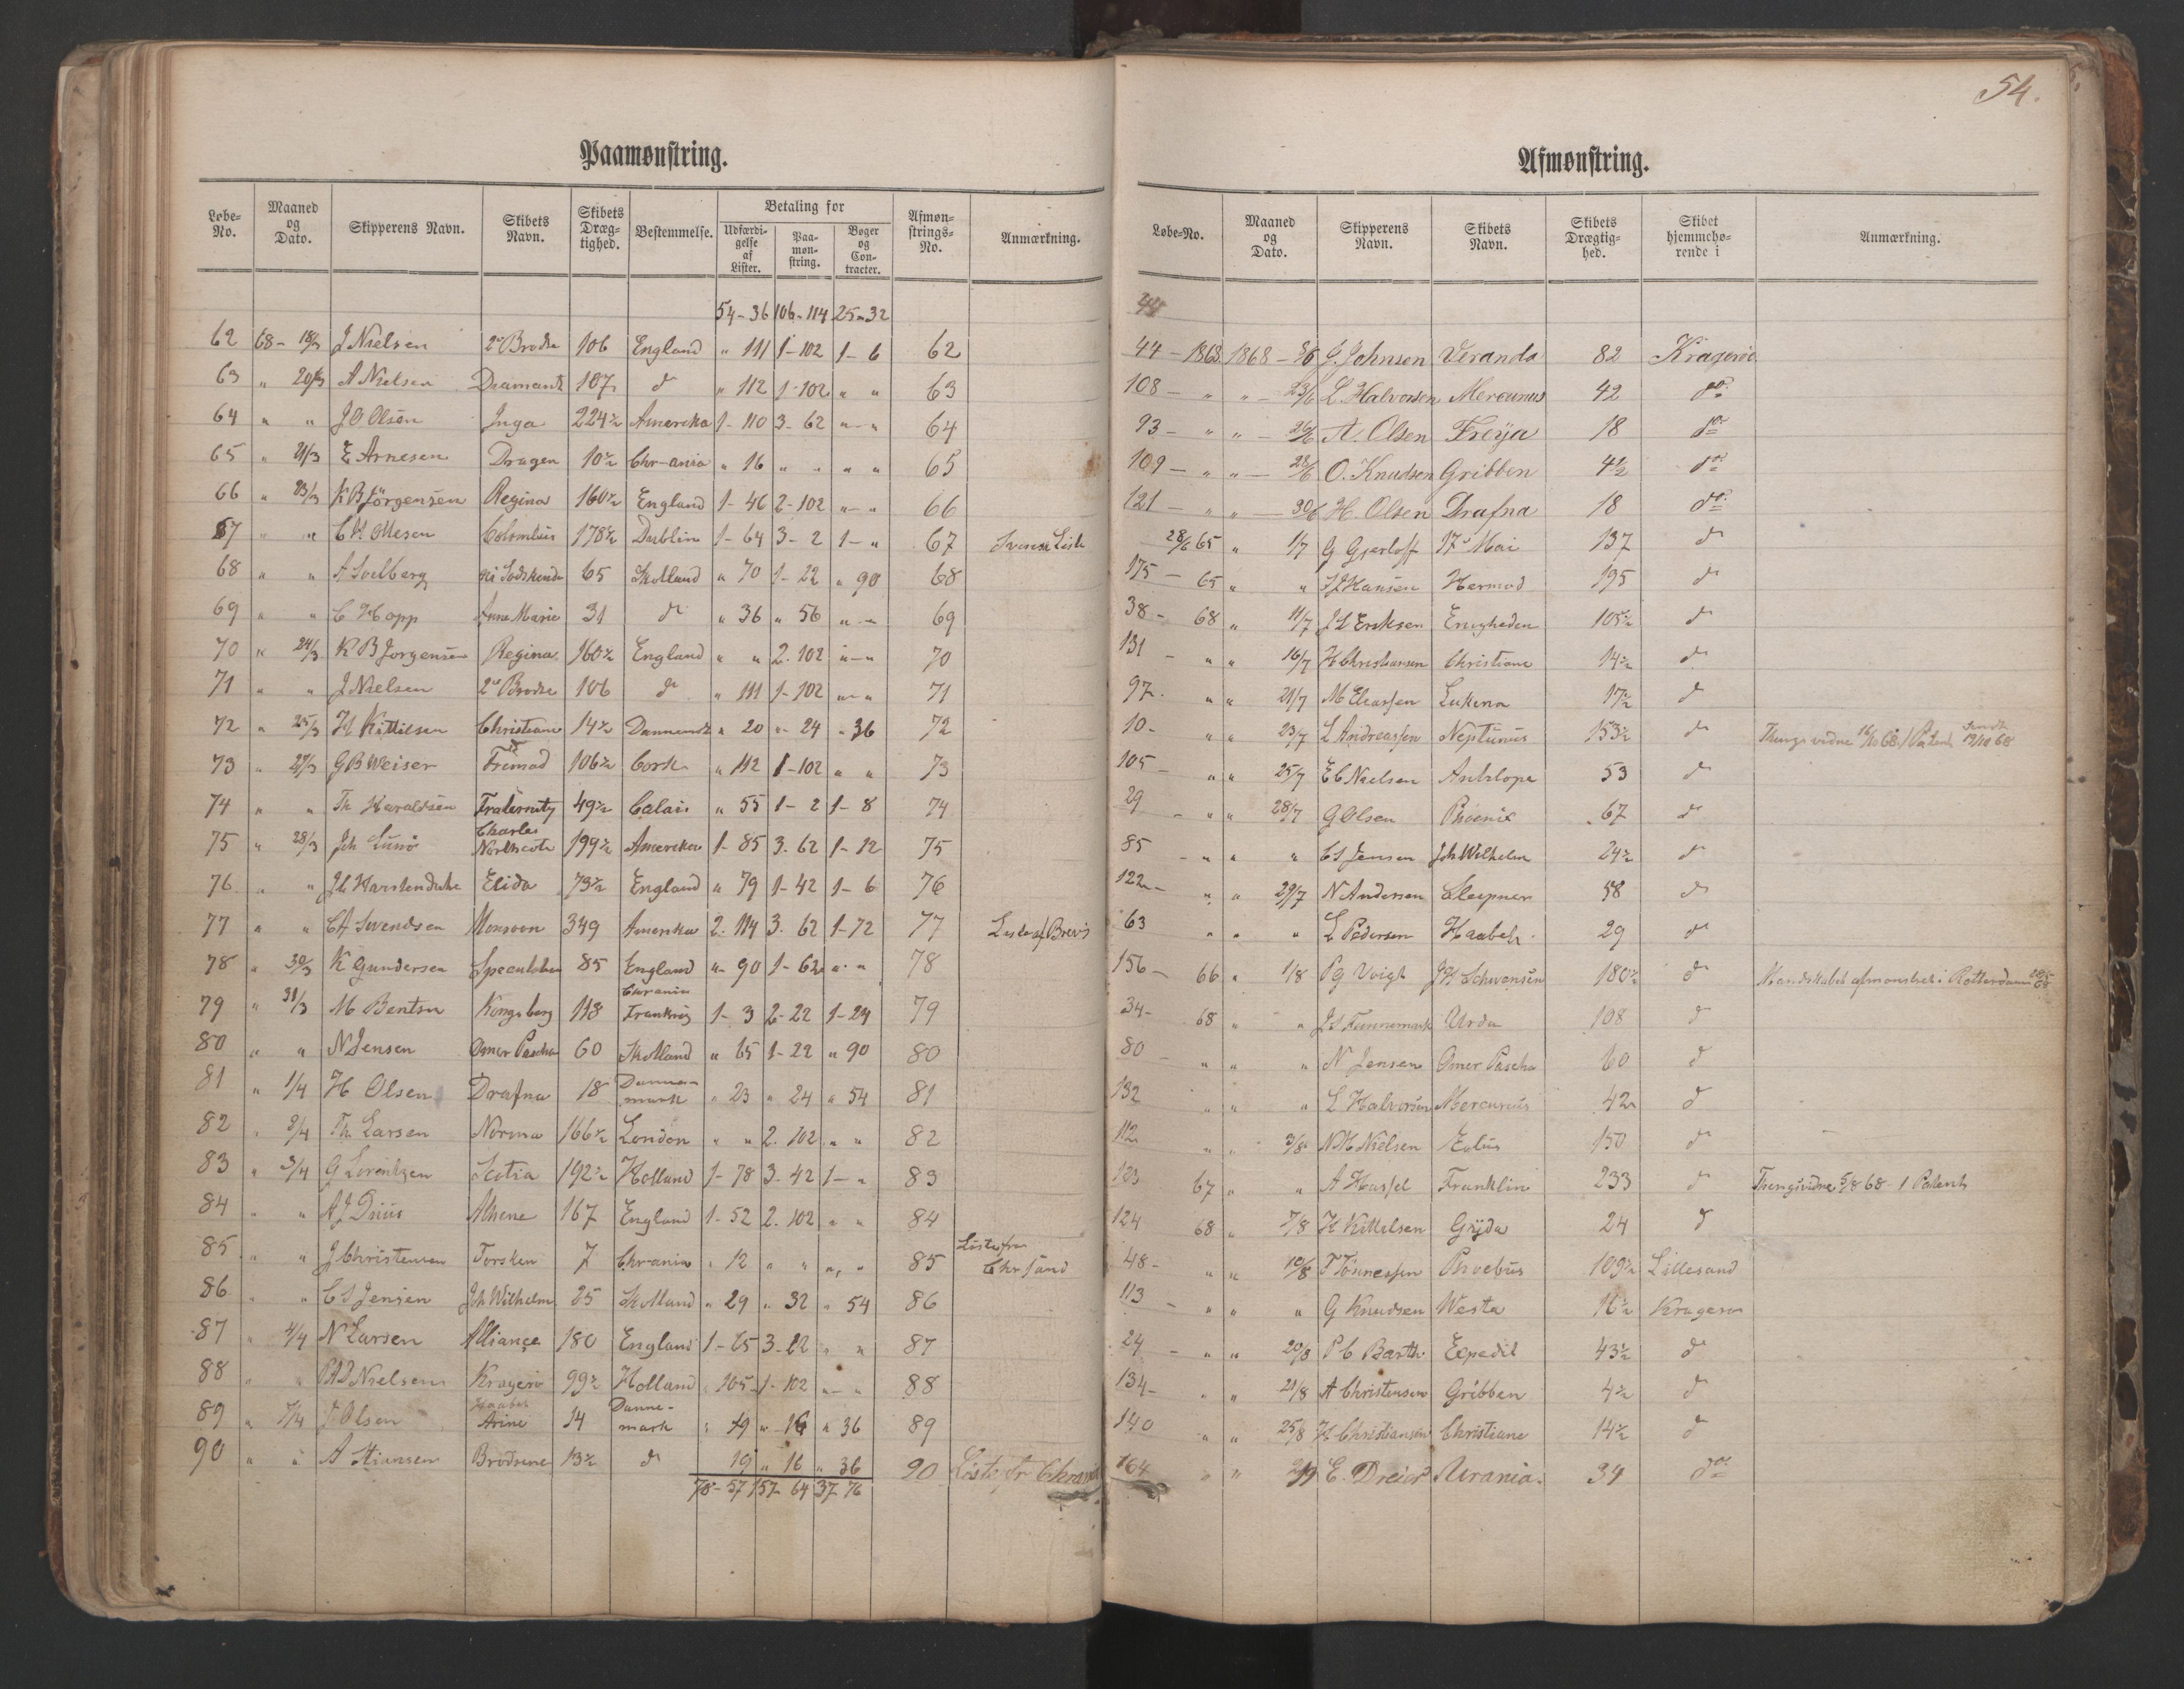 54.
Paamønstring.
Løbe-No. | Maaned og Dato. | Skipperens Navn. | Skibets Navn. | Skibets Dræg-tighed. | Bestemmelse. | Betaling for | Udfærdi-gelse af Lister. | Paa-møn-string. | Bøger og Con-tracter. | Afmøn-strings-No. | Anmærkning.
54-36 106-114 25-32
62 68- 18/3 J Nielsen 2de Brødre 106 England " 111 1-102 1-6 62
63 " 20/3 A Nielsen Diamant 107 do " 112 1-102 " " 63
64 " " J O Olsen Inga 224½ Amerika 1-110 3-62 "-" 64
65 " 21/3 E Arnesen Dragen 10½ Chr-ania " 16 " " " " 65
66 " 23/3 K B Jörgensen Regina 160½ England 1-46 2-102 "-" 66
67 " " Colombus 178½ Dublin 1-64 3-2 1-" 67
68 " " A Soelberg 65 Skotland " 70 1-22 " 90 68
69 " " C Hopp Anne Marie 31 do " 36 " 56 "-" 69
70 " 24/3 K B Jorgensen Regina 160½ England " " 2-102 "-" 70
71 " " J Nielsen 2de Brødre 106 do " 111 1-102 "-" 71
72 " 25/3 H Kittilsen Christiane 14½ Danmark " 20 "-24 "36 72
73 " 27/3 G B Weiser Fremad 106½ Cork " 112 1-102 " " 73
74 " " Th Haraldsen Fraternity 49½ Calais " 55 1-2 1-8 74
75 " 28/3 Joh Charles Northcote 199½ Amerika 1-85 3-62 1-12 75
76 " " Elida 73½ England " 79 1-42 1-6 76
77 " " C A Svendsen Monsoon 349 Amerika 2-114 3-62 1-72 77 Liste af Brevig
78 " 30/3 K Gundersen 85 England "-90 1-62 "-" 78
79 " 31/3 M Bentsen Kongsberg 118 Chrania Frankrig 1-3 2-22 1-24 79
80 " " N Jensen Omer Pascha 60 Skotland " 65 1-22 " 90 80
81 " 1/4 H Olsen Drafna 18 Danne-mark " 23 " 24 " 54 81
82 " 2/4 Th Larsen Norma 166½ London " " 2-102 " " 82
83 " 3/4 G Lorentzen Scotia 192½ Holland 1-78 3-42 1-" 83
84 " " Athene 167 England 1-52 2-102 " " 84
85 " " J Christensen Torsken 7 Chrania " 12 " " " " 85 Liste fra Chrsand
86 " " C S Jensen Joh Wilhelm 25 Skotland " 29 " 32 " 54 86
87 " 4/4 N Larsen Alliance 180 England 1-65 3-22 " " 87
88 " " Nielsen Kragerø 99½ Holland " 105 1-102 "-" 88
89 " 7/4 J Olsen Haabet Arine 14 Danne-mark " 19 " 16 " 36 89
90 " " A Stiansen Brødrene 13½ do 19 " 16 " 36 90 Liste fr Chrania
78-57 157-64 37-76
Afmønstring.
Løbe-No. | Maaned og Dato. | Skipperens Navn. | Skibets Navn. | Skibets Drægtig-hed. | Skibet hjemmehø-rende i | Anmærkning.
44
44-1868 1868- J. Johnsen Veranda 82 Kragerøe
108- " "- 23/6 L. Halvorsen Mercurius 42 do
93- " "- 26/6 A. Olsen Freya 18 do
109- " "- 28/6 O. Knudsen Gribben 4½ do
121- " "- 30/6 H. Olsen Drafna 18 do
28/6 65 " 1/7 G Gjerloff 17de Mai 137 do
175- 65 " " Hansen Hermod 195 do
38- 68 " 11/7 J L Eriksen Enigheden 105½ do
131- " " 16/7 H Christiansen Christiane 14½ do
97- " " 21/7 M Eliassen Lukina 17½ do
10- " " 23/7 L Andreassen Neptunus 153½ do Thingsvidne 16/10 68 / Patent Sendt 19/10 68
105- " " 25/7 E C Nielsen Antelope 53 do
29- " " 28/7 G Olsen Phoenix 67 do
85- " " " C S Jensen Joh Wilhelm 24½ do
122- " " 29/7 N Andersen Sleipner 58 do
63 " " " L Pedersen Haabet 29 do
156- 66 " 1/8 P G Voigt J H Schwensen 180½ do Mandskabet afmonstret i Rotterdam
34- 68 " " J S Finnemark Urda 108 do
80- " " " N Jensen Omer Pascha 60 do
132 " " " L Halvorsen Mercurius 42 do
112 " " 3/8 N M Nielsen Eolus 150 do
123 67 " " A Hassel Franklin 233 do Thingsvidne 5/8 68 - 1 Patent
124 68 " 7/8 H Kittelsen Gyda 24 do
48- " " 10/8 T Tönnessen Phoebus 109½ Lillesand
113- " " " G Knudsen Westa 16½ Kragerø
24- " " 20/8 P C Barth Expedit 43½ do
134- " " 21/8 A Christensen Gribben 4½ do
140 " " 25/8 H Christiansen Christiane 14½ do
164 " " E. Dreier Urania. 34 do